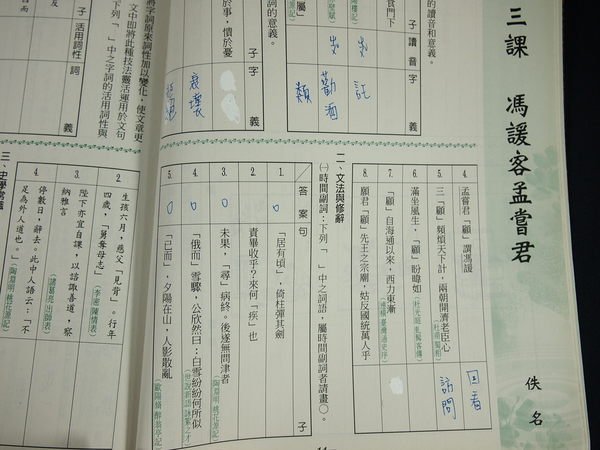 三課 馮諼客孟嘗君
佚 名
的讀音和意義。
食門下
子 讀音 字 義
託
歲
歲 勸酒
類
的意義。
子 字 義
衰壞
將字詞原來詞性加以變化，使文章更
文中即將此種技法靈活運用於文句
下列「 」中之字詞的活用詞性與
子 活用詞性 詞 義
4. 孟嘗君「顧」謂馮諼 回看
5. 三「顧」頻煩天下計，兩朝開濟老臣心 訪問
6. 滿坐風生，「顧」盼暐如
7. 「顧」自海通以來，西力東漸
8. 願君「顧」先王之宗廟，姑反國統萬人乎
二、文法與修辭
㈠時間副詞：下列「 」中之詞語，屬時間副詞者請畫○。
答案 句 子
1. ○ 「居有頃」，倚柱彈其劍
2. 責畢收乎？來何「疾」也
3. ○ 未果，「尋」病終。後遂無問津者
（陶淵明桃花源記）
4. ○ 「俄而」雪驟，公欣然曰：白雪紛紛何所似
5. ○ 「已而」，夕陽在山，人影散亂
（歐陽脩醉翁亭記）
生孩六月，慈父「見背」。行年
2. 四歲，「舅奪母志」
（李密陳情表）
3. 陛下亦宜自課，以諮諏善道，察
納雅言
（諸葛亮出師表）
4. 停數日，辭去。此中人語云：「不
足為外人道也。」
（陶淵明桃花源記）